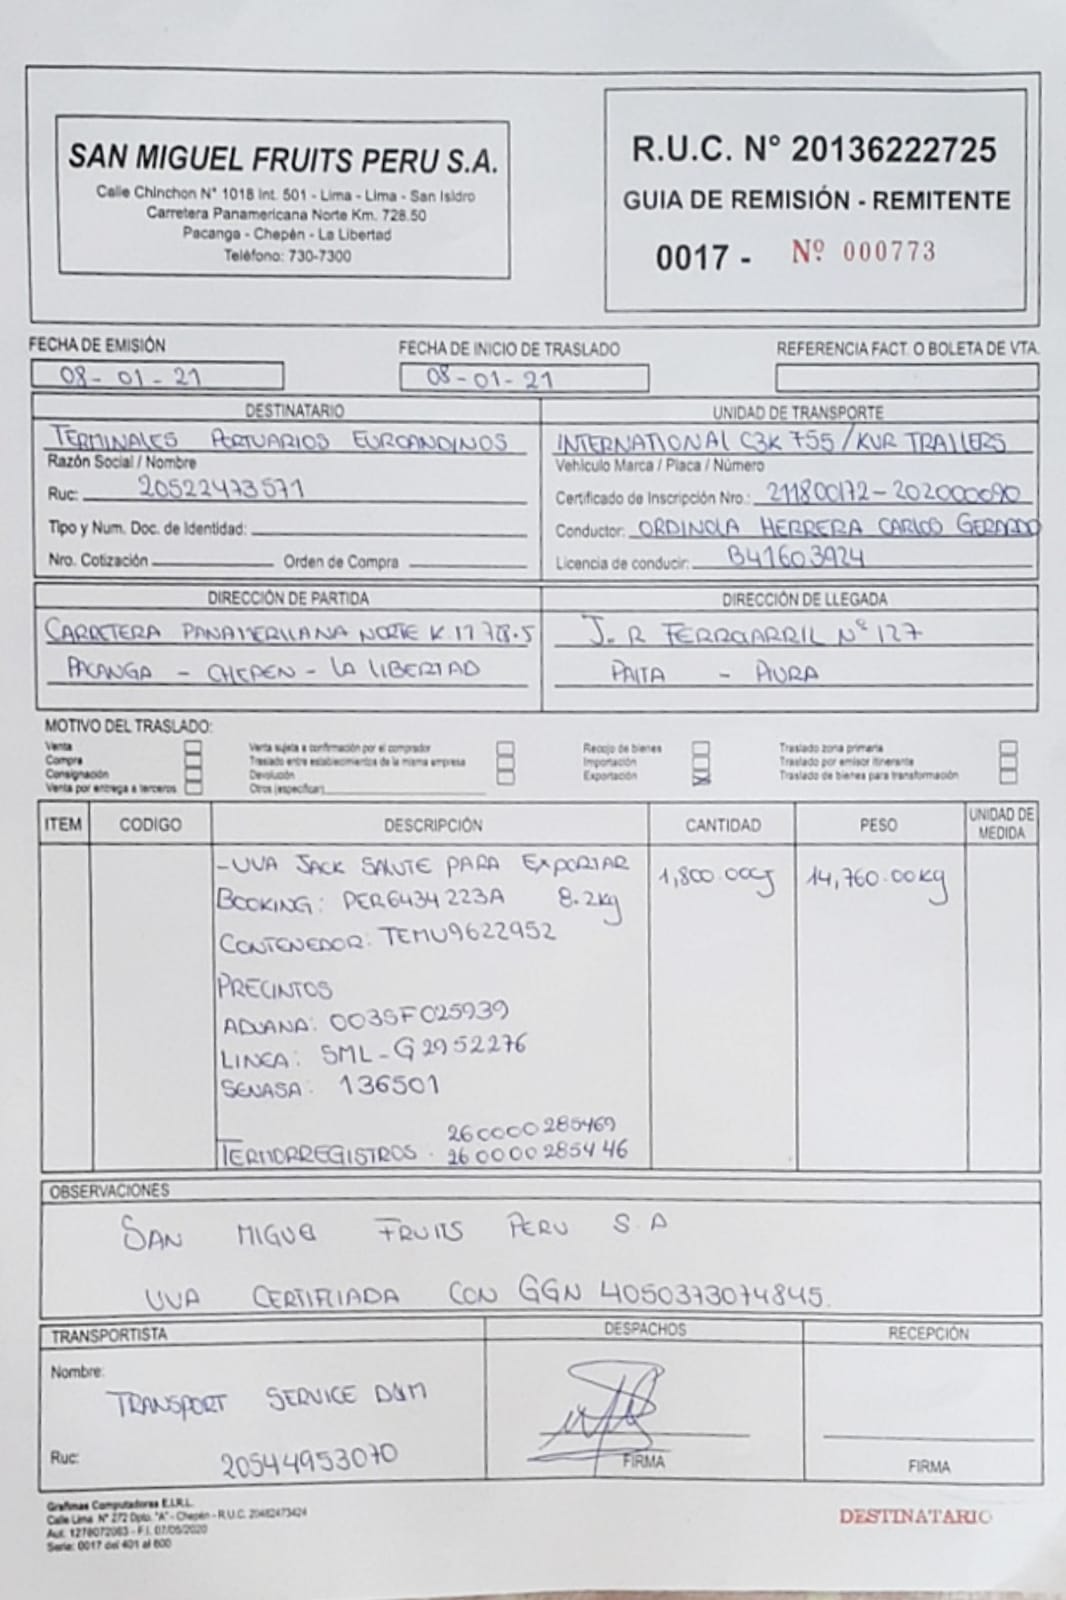 SAN MIGUEL FRUITS PERU S.A.
Calle Chinchon N° 1018 Int. 501 - Lima - Lima - San Isidro
Carretera Panamericana Norte Km. 728.50
Pacanga - Chepén - La Libertad
Teléfono: 730-7300
R.U.C. N° 20136222725
GUIA DE REMISIÓN - REMITENTE
0017 - Nº 000773
FECHA DE EMISIÓN
08-01-21
FECHA DE INICIO DE TRASLADO
08-01-21
REFERENCIA FACT. O BOLETA DE VTA.
DESTINATARIO
TERMINALES PORTUARIOS EUROANDINOS
Razón Social / Nombre
Ruc: 20522473571
Tipo y Num. Doc. de Identidad:
Nro. Cotización Orden de Compra
UNIDAD DE TRANSPORTE
INTERNATIONAL C3K 755 / KUR TRAILERS
Vehículo Marca / Placa / Número
Certificado de Inscripción Nro.: 211800172-202000090
Conductor: ORDINOLA HERRERA CARLOS GERARDO
Licencia de conducir: B41603924
DIRECCIÓN DE PARTIDA
CARRETERA PANAMERICANA NORTE K.M 728.5
PACANGA - CHEPEN - LA LIBERTAD
DIRECCIÓN DE LLEGADA
J.R FERROARRIL N° 127
PAITA - PIURA
MOTIVO DEL TRASLADO:
Venta
Compra
Consignación
Venta por entrega a terceros
Venta sujeta a confirmación por el comprador
Traslado entre establecimientos de la misma empresa
Devolución
Otros (especificar)
Recojo de bienes
Importación
Exportación
Traslado zona primaria
Traslado por emisor itinerante
Traslado de bienes para transformación
ITEM CODIGO DESCRIPCIÓN CANTIDAD PESO UNIDAD DE MEDIDA
-UVA JACK SALUTE PARA EXPORTAR 1,800.00CJ 14,760.00kg
BOOKING: PER6434223A 8.2kg
CONTENEDOR: TEMU9622952
PRECINTOS
ADUANA: 003SF025939
LINEA: SML-G2952276
SENASA: 136501
260000285469
TERMORREGISTROS. 260000285446
OBSERVACIONES
SAN MIGUEL FRUITS PERU S.A
UVA CERTIFICADA CON GGN 4050373074845.
TRANSPORTISTA
Nombre:
TRANSPORT SERVICE D&M
Ruc: 20544953070
DESPACHOS
FIRMA
RECEPCIÓN
FIRMA
Grafimas Computadoras E.I.R.L.
Calle Lima N° 272 Dpto. "A" - Chepén - R.U.C. 20482473424
Aut. 1278072063 - F.I. 07/05/2020
Serie: 0017 del 401 al 800
DESTINATARIO